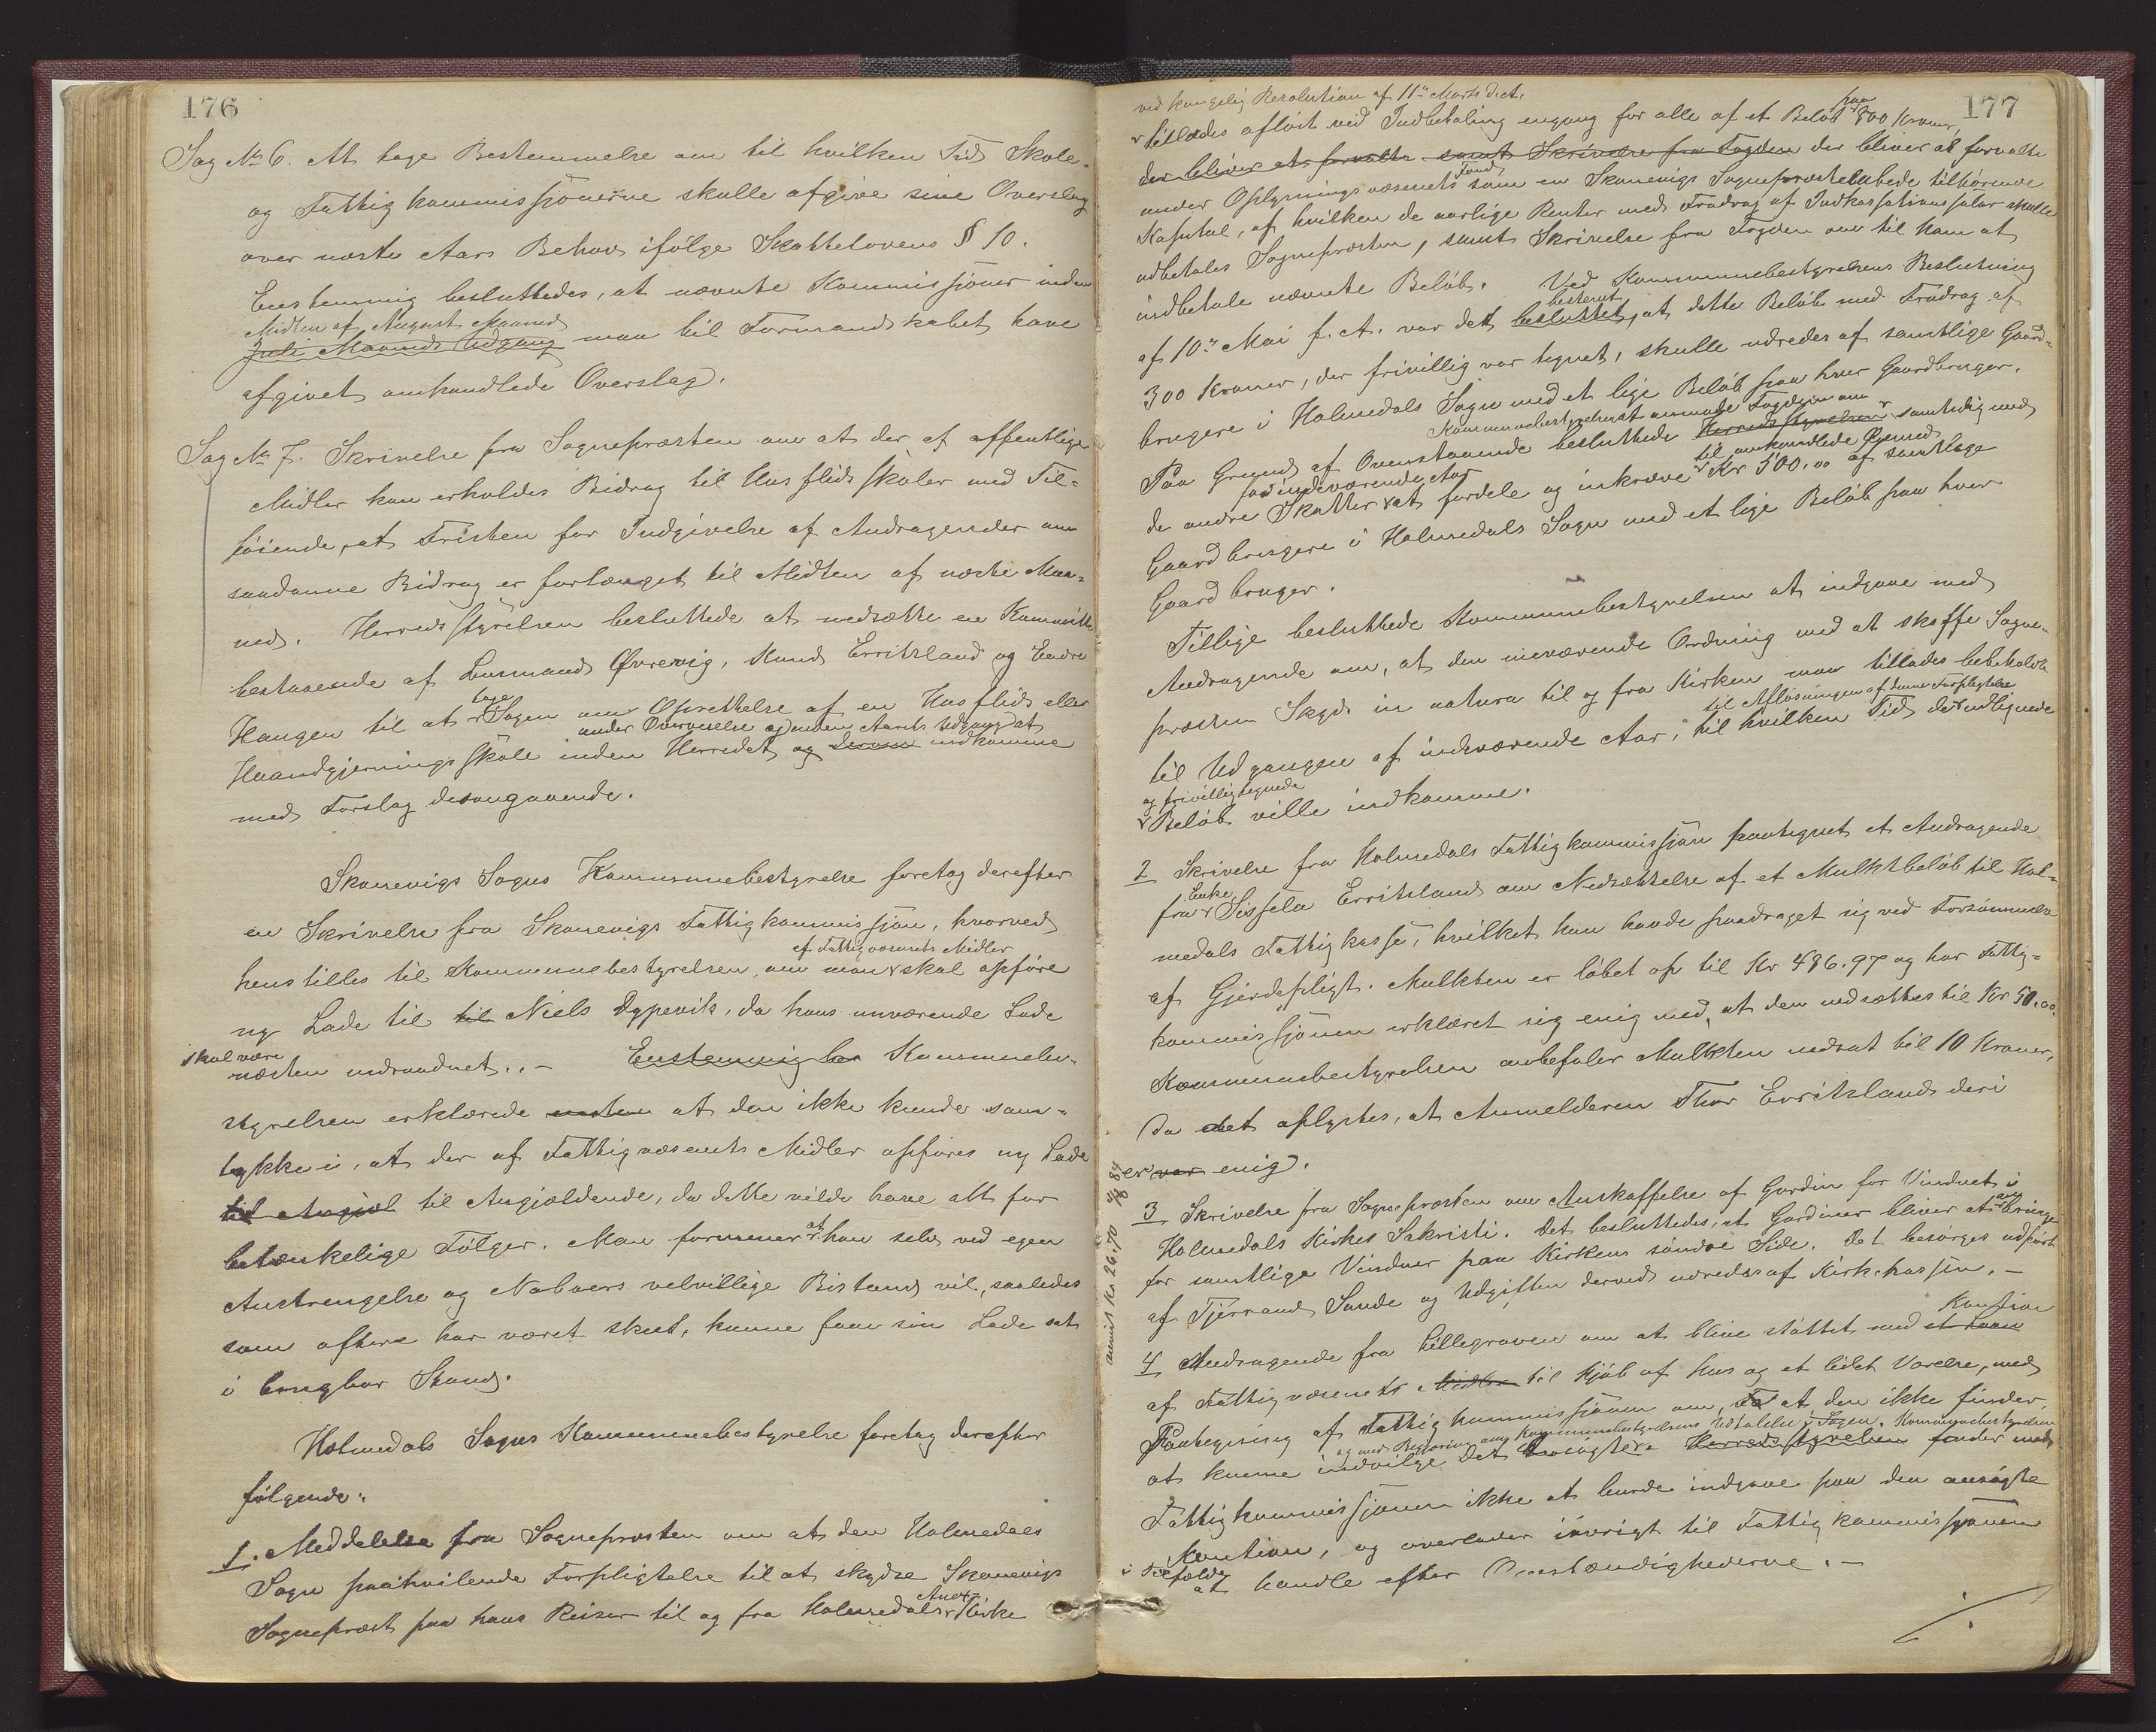 176
Sag No 6. At tage Bestemmelse om til hvilken Tid Skole-
og Fattigkommissjonerne skulle afgive sine Overslag
over næste Aars Behov ifølge Skattelovens § 10.
Enstemmig besluttedes, at nævnte Kommissjoner inden
Midten af August Maaned
Juli Maaneds Udgang maa til Formandskabet have
afgivet omhandlede Overslag.
Sag No 7. Skrivelse fra Sognepræsten om at der af offentlige
Midler kan erholdes Bidrag til Husflidsskoler med Til-
føiende, at Fristen for Indgivelse af Andragender om
saadanne Bidrag er forlænget til Midten af næste Maa-
ned. Herredsstyrelsen besluttede at nedsætte en Kommitte
bestaaende af Lensmand Øvrevig, Knud Erritsland og Endre
Haugen til at tage Sagen om Oprettelse af en Husflids eller
under Overveielse og inden Aarets Udgang at
Haandgjerningsskole inden Herredet og derom indkomme
med Forslag desangaaende.
Skonevigs Sogns Kommunebestyrelse foretog derefter
en Skrivelse fra Skonevigs Fattigkommissjon, hvorved
af Fattigvæsenets Midler
henstilles til Kommunebestyrelsen, om man skal opføre
ny Lade til til Niels Dypevik, da hans nuværende Lade
skal være
næsten nedraadnet. . – Enstemmig har Kommunebe-
styrelsen erklærede at den ikke kunde sam-
tykke i, at der af Fattigvæsenets Midler opføres ny Lade
til Angjæl til Angjældende, da dette vilde have alt for
betænkelige Følger. Man formener at han selv ved egen
Anstrengelse og Naboers velvillige Bistand vil, saaledes
som oftere har været skeet, kunne faae sin Lade sat
i brugbar Stand.
Holmedals Sogns Kommunebestyrelse foretog derefter
følgende:
1. Meddelelse fra Sognepræsten om at den Holmedals
Sogn paahvilende Forpligtelse til at skydse Skonevigs
Sognepræst paa hans Reiser til og fra Holmedals Kirke
177
ved kongelig Resolution af 11te Marts d. A.
tillades afløst ved Indbetaling engang for alle af et Beløb paa 800 Kroner,
der bliver at forvalte samt Skrivelse fra Fogden der bliver at forvalte
under Oplysningsvæsenets Fond som en Skonevigs Sognepræsteembede tilhørende
Kapital, af hvilken de aarlige Renter med Fradrag af Indkassationssalær skulle
udbetales Sognepræsten, samt Skrivelse fra Fogden om til ham at
indbetale nævnte Beløb. Ved Kommunebestyrelsens Beslutning
af 10de Mai f. A. var det besluttet bestemt, at dette Beløb med Fradrag af
300 Kroner, der frivillig var tegnet, skulle udredes af samtlige Gaard-
brugere i Holmedals Sogn med et lige Beløb paa hver Gaardbruger.
Kommunebestyrelsen at anmode Fogden om
Paa Grund af Ovenstaaende besluttede Herredsstyrelsen samtidig med
for indeværende Aar
til omhandlede Øiemed
de andre Skatter at fordele og inkræve Kr 500.00 af samtlige
Gaardbrugere i Holmedals Sogn med et lige Beløb paa hver
Gaardbruger.
Tillige besluttede Kommunebestyrelsen at indgaae med
Andragende om, at den nuværende Ordning med at skaffe Sogne-
præsten Skyds in natura til og fra Kirken maa tillades beholdt
til Afløsningen af denne Forpligtelse
til Udgangen af indeværende Aar, til hvilken Tid det udlignede
og frivillig tegnede
Beløb ville indkomme.
2 Skrivelse fra Holmedals Fattigkommissjon paategnet et Andragende
fra Enke Sissela Erritsland om Nedsættelse af et Mulktbeløb til Hol-
medals Fattigkasse, hvilket hun havde paadraget sig ved Forsømmelse
af Gjerdepligt. Mulkten er løbet op til Kr 486.97 og har Fattig-
kommissjonen erklæret sig enig med, at den nedsættes til Kr 50.00.
Kommunebestyrelsen anbefaler Mulkten nedsat til 10 Kroner,
da det oplystes, at Anmelderen Thor Erritsland deri
er var enig.
3 Skrivelse fra Sognepræsten om Anskaffelse af Gardin for Vinduet i
Holmedals Kirkes Sakristi. Det besluttedes, at Gardiner bliver at anbringe
for samtlige Vinduer paa Kirkens søndre Side. Det besørges udført
af Tjerrand Sande og Udgiften derved udredes af Kirkekassen. –
Kaution
4 Andragende fra Lillegraven om at blive støttet med et Laan
af Fattigvæsenets Midler til Kjøb af Hus og et lidet Værelse, med
Paategning af Fattigkommissjonen om, at den ikke finder
og med Begjæring om Kommunebestyrelsens Udtalelse i Sagen. Kommunebestyrelsen
at kunne indvilge det ansøgte. Herredsstyrelsen finder med
Fattigkommissjonen ikke at burde indgaae paa den ansøgte
Kaution, og overlader iøvrigt til Fattigkommissjonen
i Tilfælde
at handle efter Omstændighederne. –